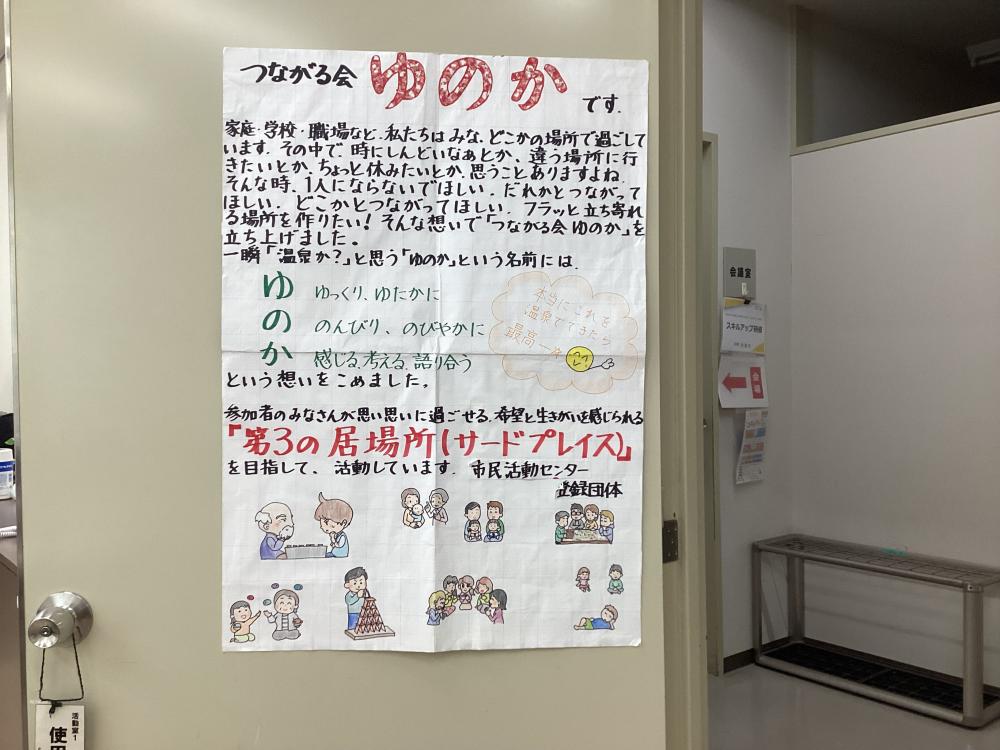 つながる会 ゆのか です.
家庭・学校・職場など、私たちは みな、どこかの場所で過ごして
います。その中で、時にしんどいなぁとか、違う場所に行
きたいとか、ちょっと休みたいとか、思うことありますよね.
そんな時、1人にならないでほしい。だれかとつながって
ほしい。どこかとつながってほしい。フラッと立ち寄れ
る場所を作りたい！そんな想いで「つながる会 ゆのか」を
立ち上げました。
一瞬「温泉か？」と思う「ゆのか」という名前には、
ゆ ゆっくり、ゆたかに
の のんびり、のびやかに
か 感じる、考える、語り合う
本当にこれを
温泉でできたら
最高
という想いをこめました。
参加者のみなさんが思い思いに過ごせる、希望と生きがいを感じられる
「第3の居場所(サードプレイス)」
を目指して、活動しています. 市民活動センター
登録団体
会議室
スキルアップ研修
会場
活動室1
使用